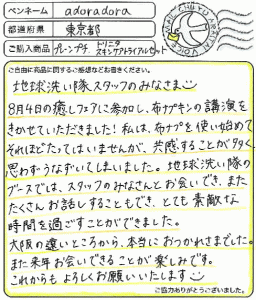 ペンネーム adoradora
都道府県 東京都
ご購入商品 プレーンプチ、トリニティスキンケアトライアルセット
ご自由に商品に関するご感想などお書きください。
地球洗い隊スタッフのみなさま
8月4日の癒しフェアに参加し、布ナプキンの講演を
きかせていただきました！私は、布ナプを使い始めて
それほどたってはいませんが、共感することが多く、
思わずうなずいてしまいました。地球洗い隊の
ブースでは、スタッフのみなさんとお会いでき、また
たくさんお話しすることもでき、とても素敵な
時間を過ごすことができました。
大阪の遠いところから、本当におつかれさまでした。
また来年お会いできることが楽しみです。
これからもよろしくお願いいたします
ご協力ありがとうございました。